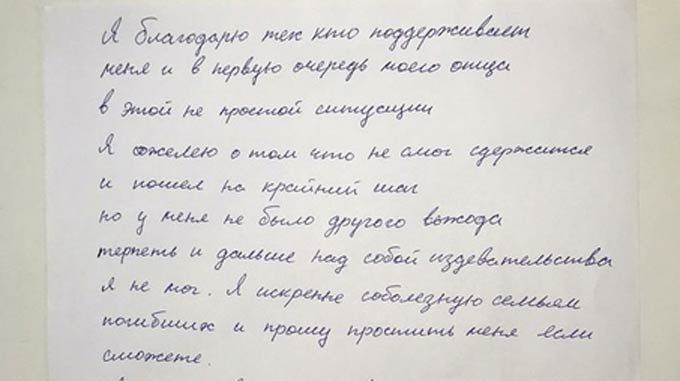 Я благодарю тех кто поддерживает
меня и в первую очередь моего отца
в этой не простой ситуации
Я сожелею о том что не смог сдержатся
и пошел на крайний шаг
но у меня не было другого выхода
терпеть и дальше над собой издевательства
я не мог. Я искренне соболезную семьям
погибших и прошу простить меня если
сможете.